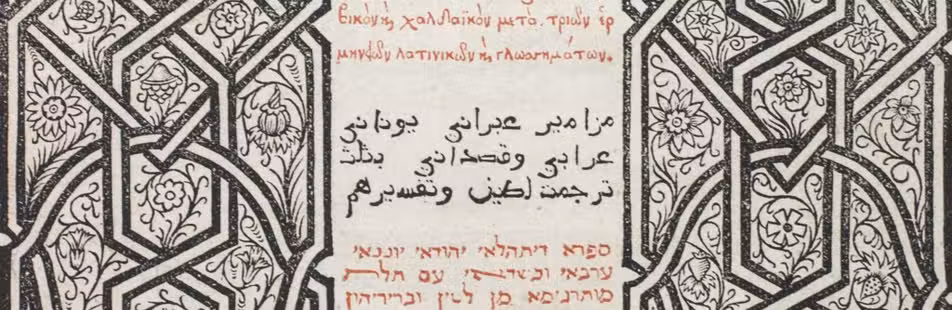 βικὸν ἢ χαλδαϊκὸν μετὰ τριῶν ἑρ
μηνιῶν λατινικῶν ἢ γλωσσημάτων.
مزامير عبراني يوناني
عرابي وقصداني بثلث
ترجمت لطيني وتفسيرهم
ספרא דיתהלאי יהודאי יוונאי
ערבאי וכשדאי עם תלת
מותרגימא מן לטין ובירידהון